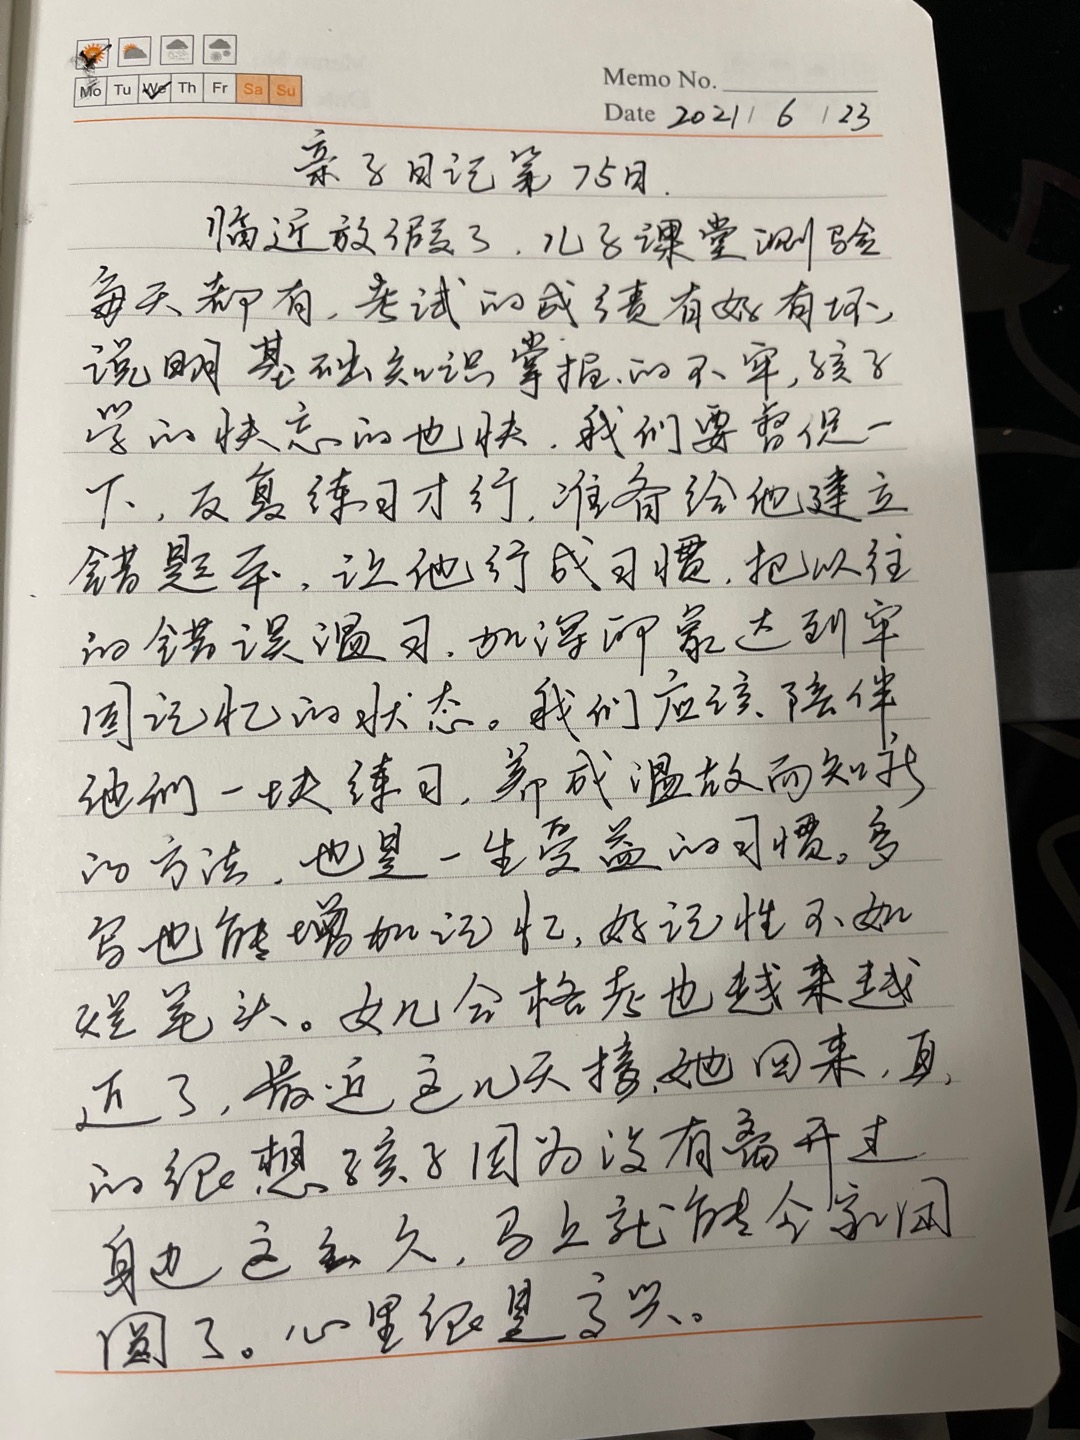 Mo Tu We Th Fr Sa Su
Memo No.
Date 2021 / 6 / 23
亲子日记第75日.
临近放假了,儿子课堂测验
每天都有,考试的成绩有好有坏,
说明基础知识掌握的不牢,孩子
学的快忘的也快,我们要督促一
下,反复练习才行,准备给他建立
错题本,让他行成习惯,把以往
的错误温习,加深印象达到牢
固记忆的状态。我们应该陪伴
他们一块练习,养成温故而知新
的方法,也是一生受益的习惯。多
写也能增加记忆,好记性不如
烂笔头。女儿会格考也越来越
近了,最近这几天接她回来,真
的很想孩子因为没有离开过
身边这么久,马上就能全家团
圆了。心里很是高兴。